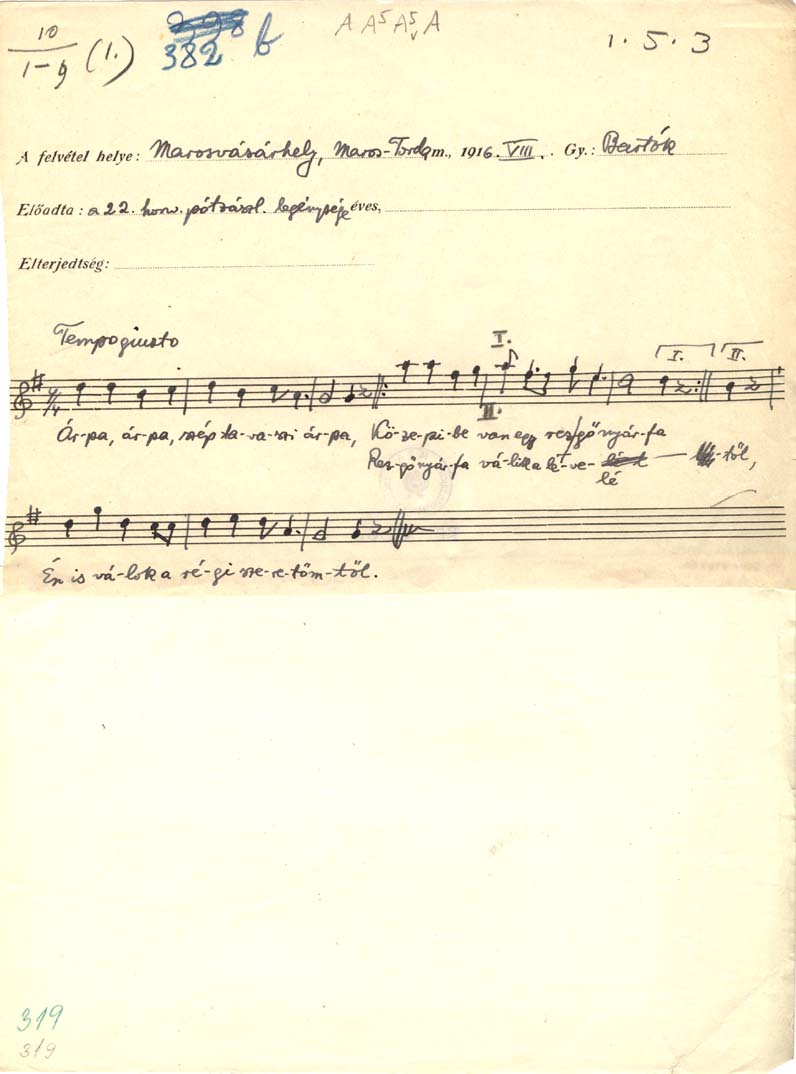 10
1-9 (1.)
398
382 b
A A⁵ A⁵ᵥ A
1 . 5 . 3
A felvétel helye: Marosvásárhely, Maros-Torda m., 1916. VIII. . Gy.: Bartók
Előadta: a 22. honv. pótzászl. legénysége éves,
Elterjedtség:
Tempo giusto
I. I. II.
4/4
II.
Ár-pa, ár-pa, szép ta-va-szi ár-pa, Kö-ze-pi-be van egy rez-gőnyár-fa
Rez-gőnyár-fa vá-lik a le-ve- -től,
lé
Én is vá-lok a ré-gi sze-re-tőm-től.
319
319